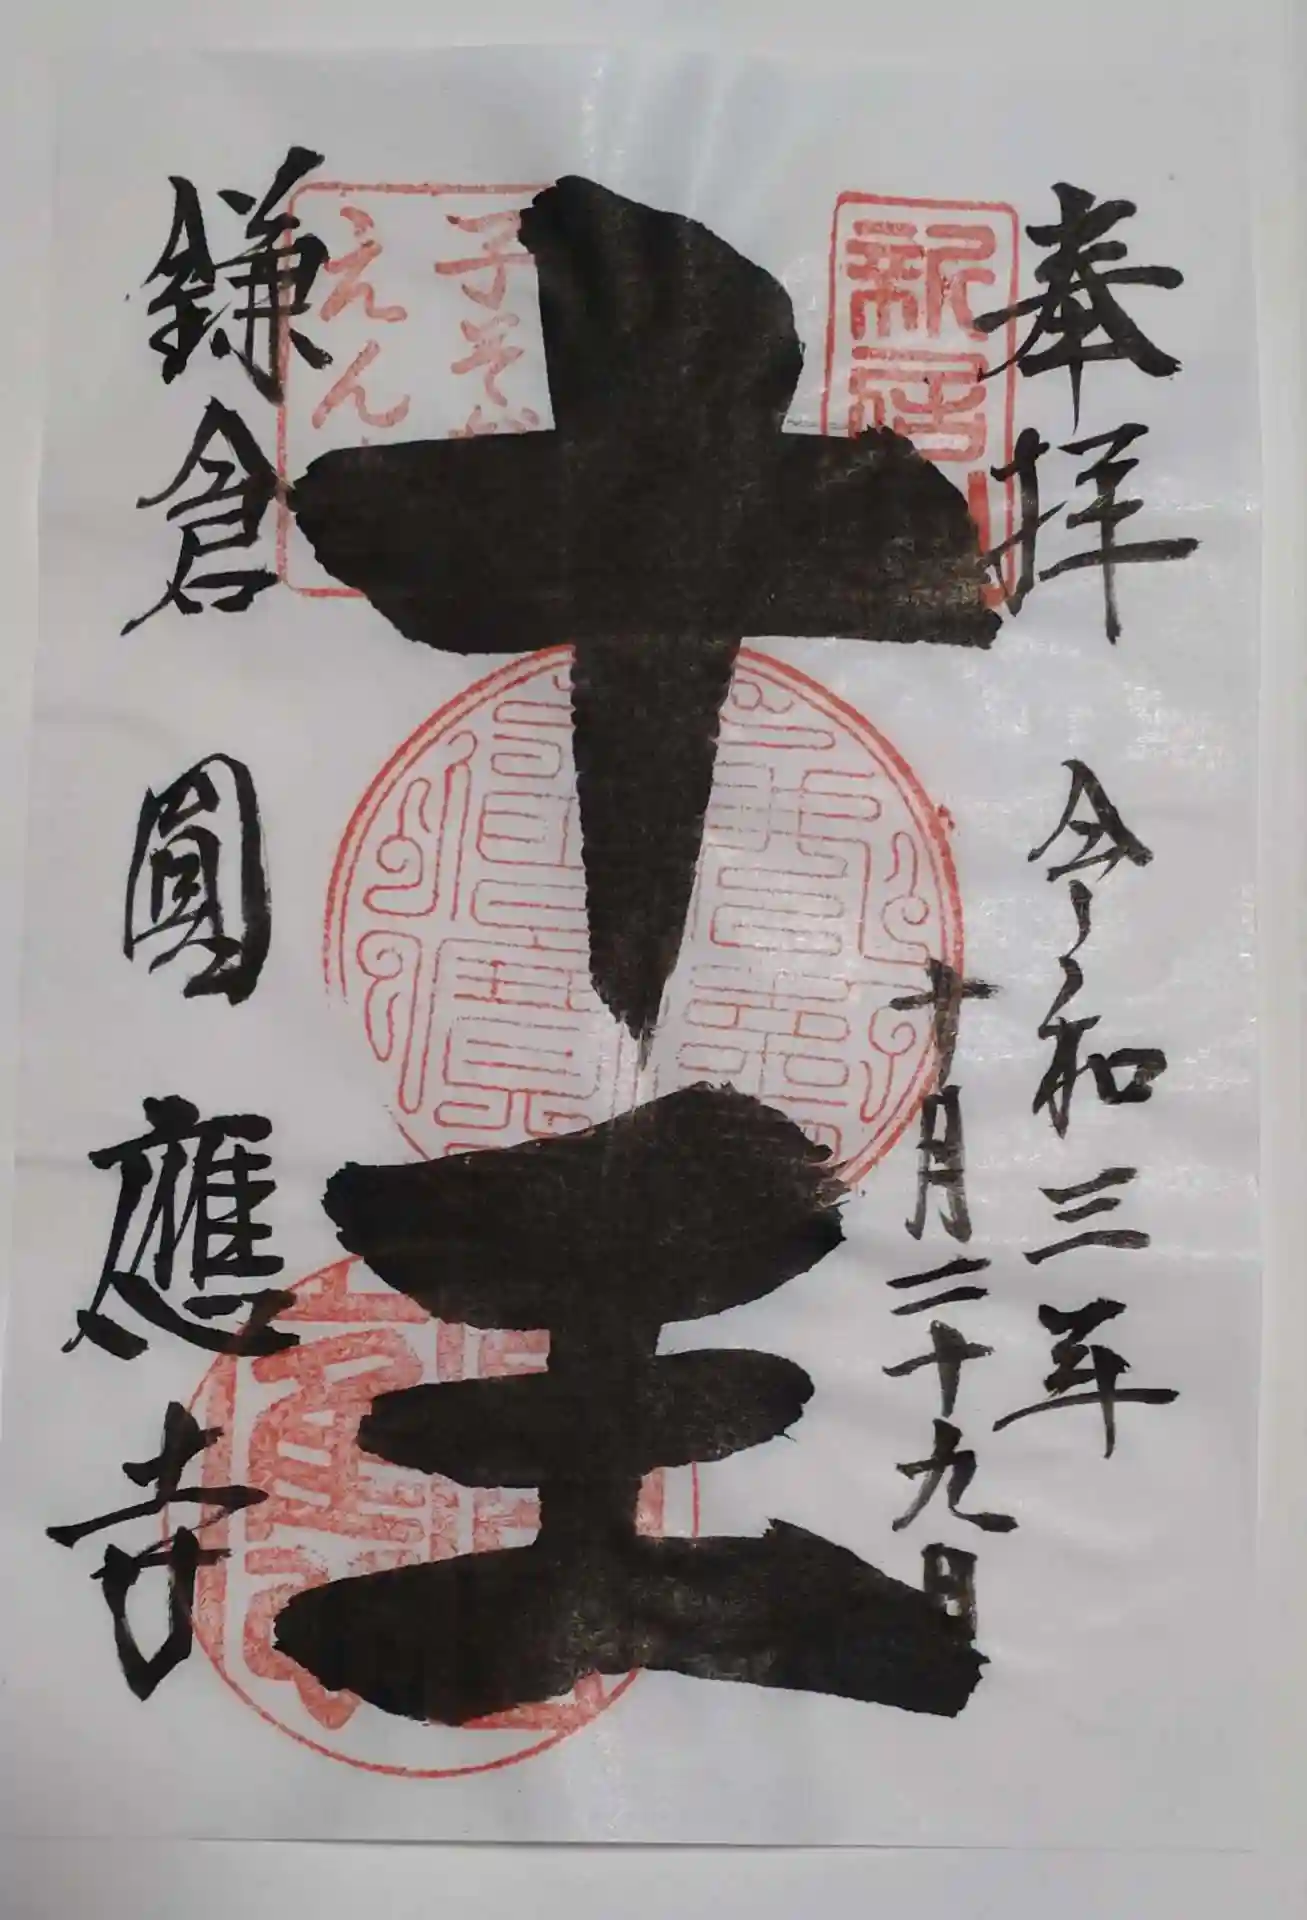 奉拝
令和三年
十月二十九日
新居
十王
子そだ
えん
鎌倉 圓應寺